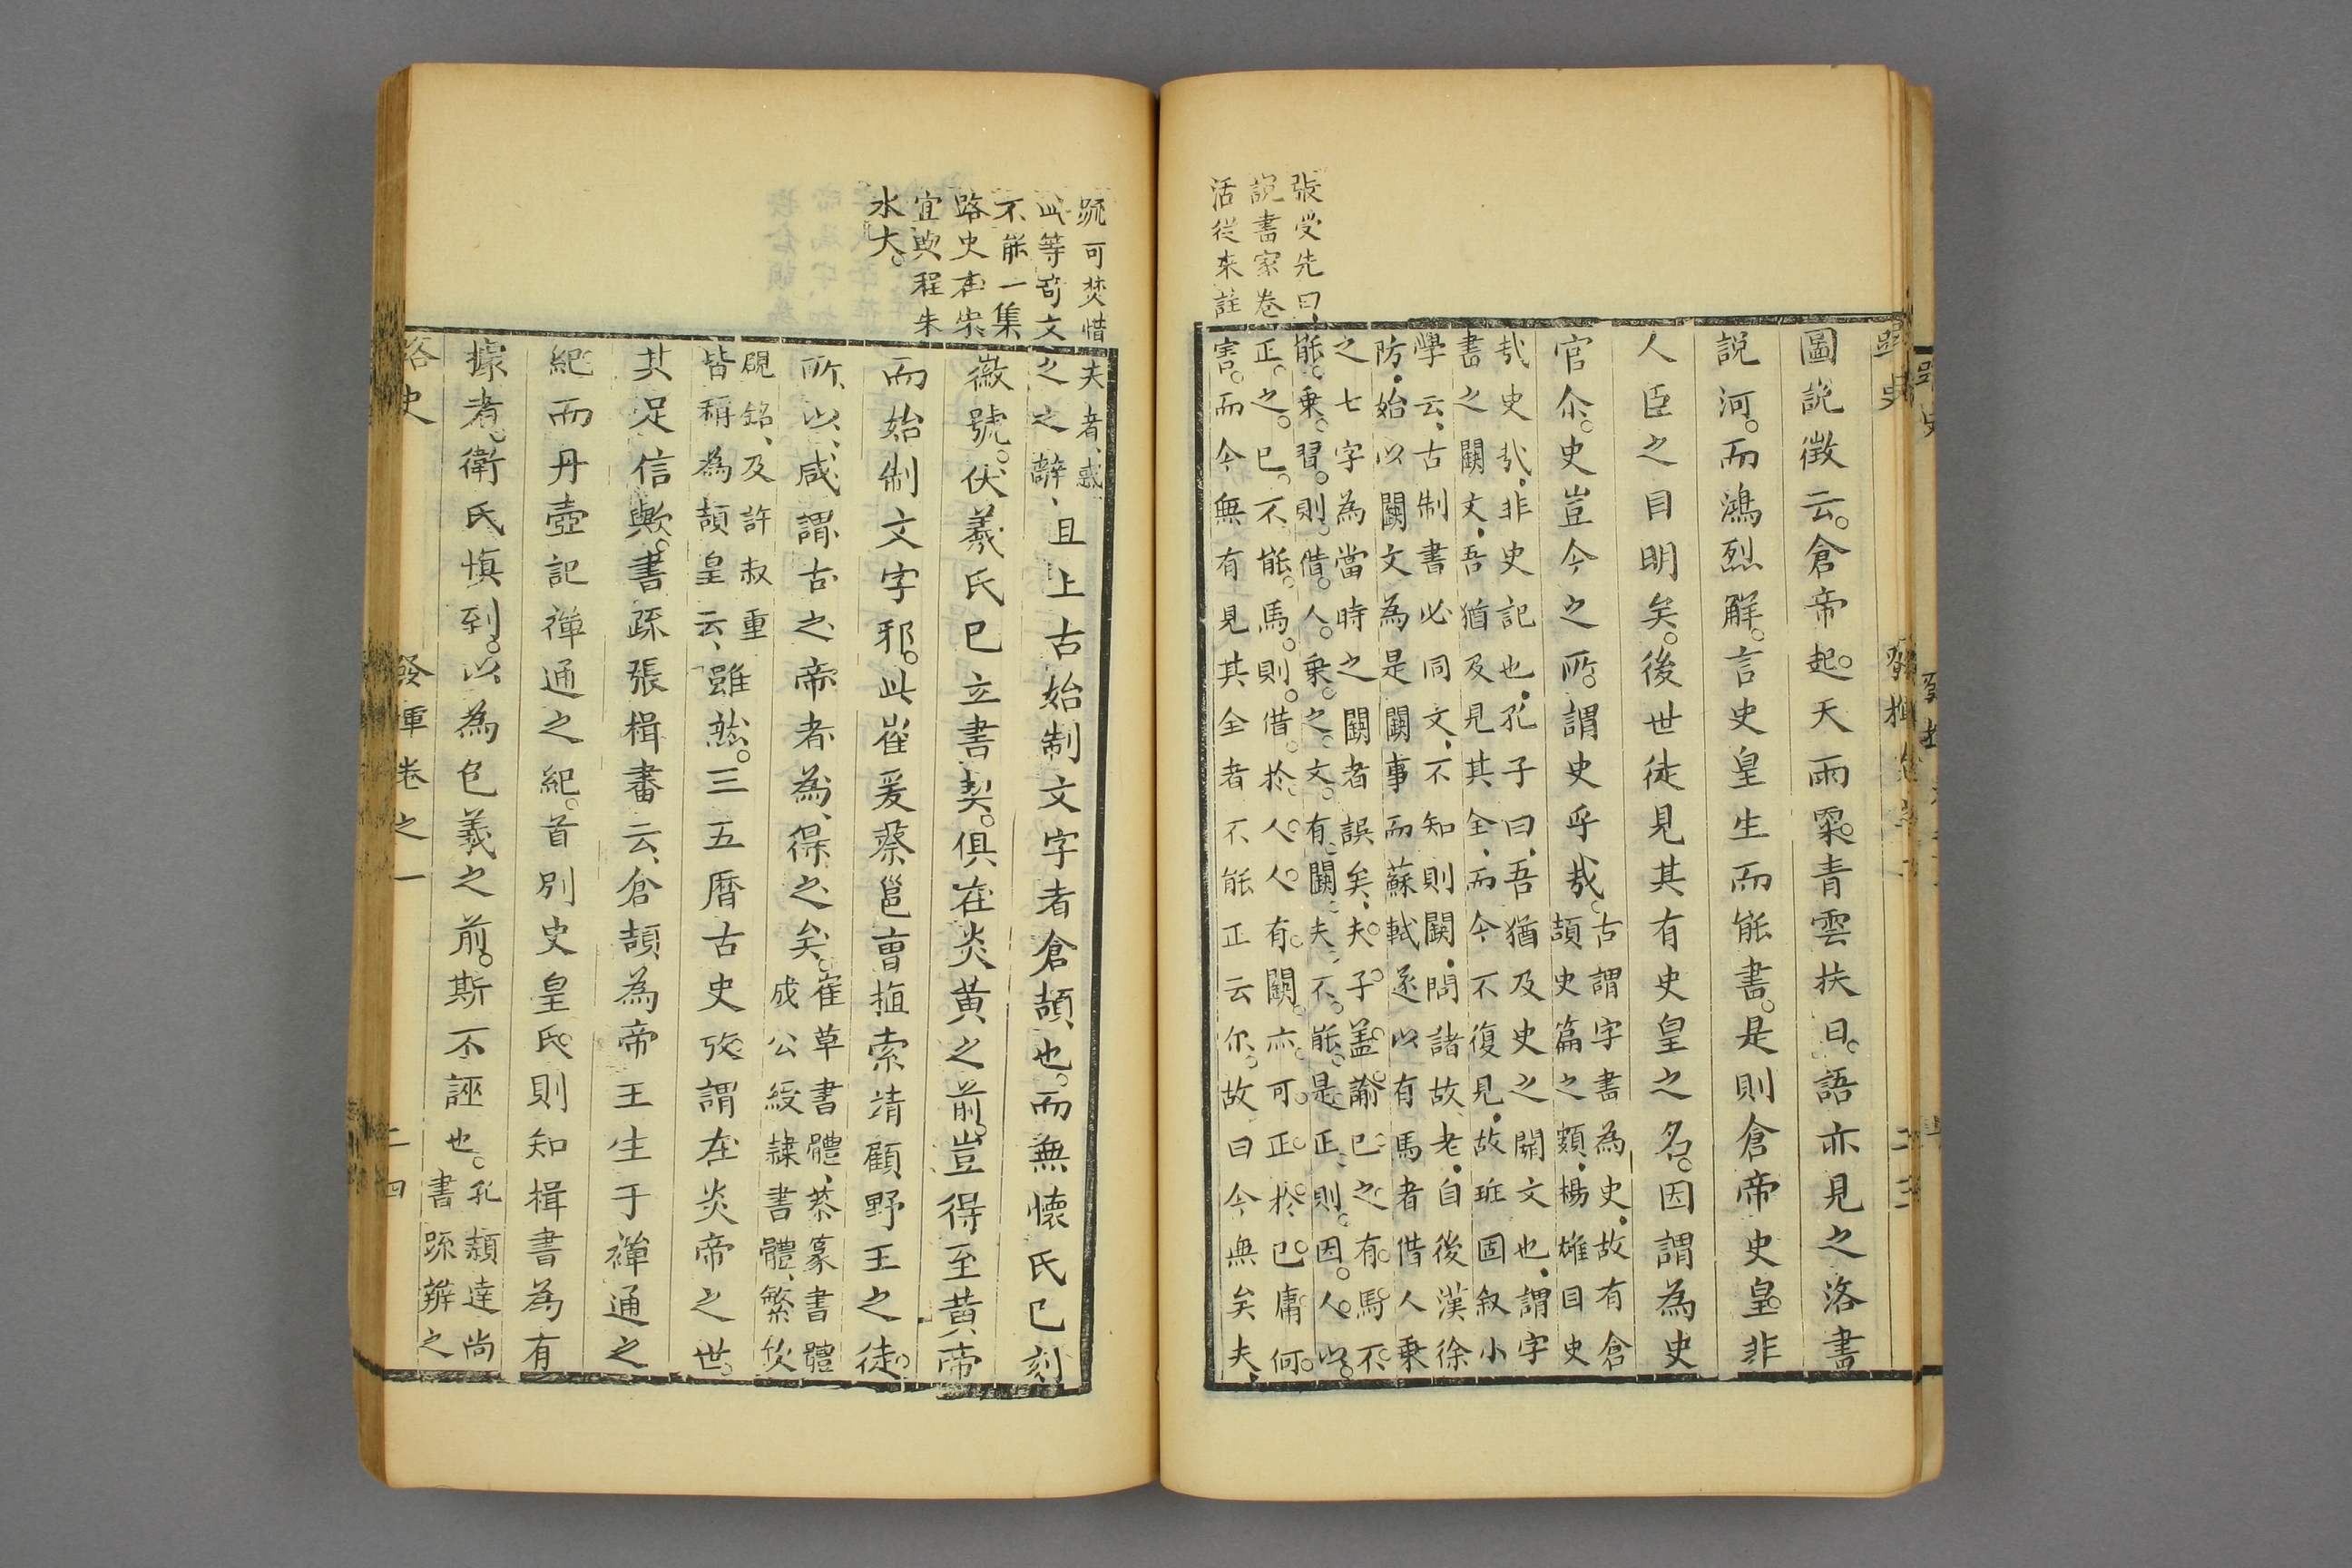 路史 發揮卷之一 二三
張受先曰、
説書家卷
活從来註
圖説徴云。倉帝起。天雨粟。青雲扶日。語亦見之洛書
説河。而鴻烈解。言史皇生而能書。是則倉帝史皇。非
人臣之目明矣。後世徒見其有史皇之名。因謂為史
官尒。史豈今之所。謂史乎㢤。
古謂字書為史。故有倉
頡史篇之類。楊雄目史
㢤史㢤。非史記也。孔子曰、吾猶及史之闕文也。謂字
書之闕文。吾猶及見其全。而今不復見。故班固叙小
學云、古制書必同文、不知則闕。問諸故老。自後漢徐
防。始以闕文為是闕事而蘇軾遂以有馬者借人乗
之七字為當時之闕者誤矣、夫。子。蓋。諭。已。之。有。馬。不。
能。乗。習。則。借。人。乗。之。文。有。闕。夫。不。能。是。正。則。因。人。以。
正。之。已。不。能。馬。則。借。於。人。人。有。闕。亦。可。正。於。已。庸。何。
害。而今無有見其全者不能正云尔。故曰今無矣夫、
䟽可焚惜
此等奇文
不能一集
路史在宋
宜與程朱
水大。
夫者、惑
之之辭、
且上古始制文字者倉頡也。而無懷氏已刻
徽號。伏羲氏已立書契。俱在炎黄之前。豈得至黄帝
而始制文字邪。此崔爰蔡邕曺植索靖顧野王之徒。
所以、咸謂古之帝者為、得之矣。
崔草書體、蔡篆書體
成公綏隷書體、繁欽
硯銘、及許叔重
皆稱為頡皇云、
雖然。三五曆古史攷。謂在炎帝之世。
其足信歟。書䟽張楫畨云、倉頡為帝王生于禪通之
紀而丹壺記禪通之紀。首別史皇氏。則知楫書為有
據者。衛氏慎到。以為包羲之前。斯不誣也。
孔頴達尚
書䟽辨之
路史 發揮卷之一 二四